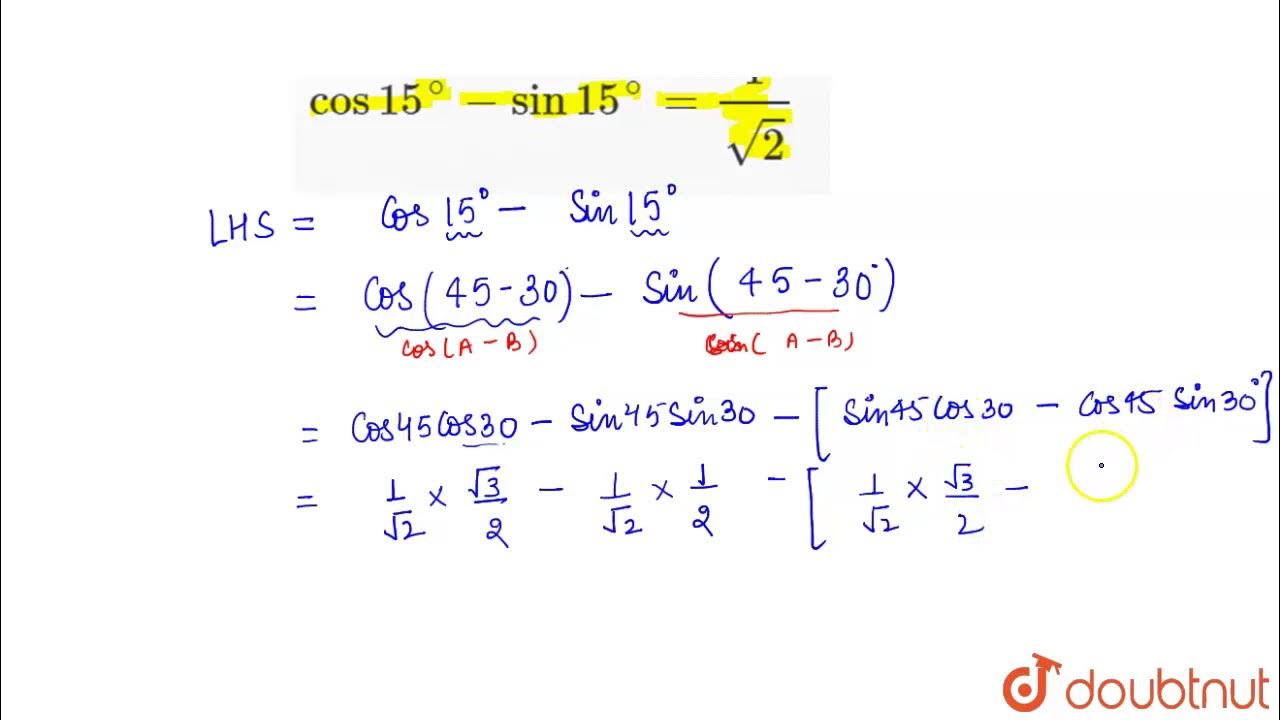 cos 15° − sin 15° = 1/√2
LHS = Cos 15° − Sin 15°
= Cos(45-30) − Sin(45-30°)
cos(A-B) Sin(A-B)
= Cos45Cos30 − Sin45Sin30 − [Sin45Cos30 − Cos45Sin30°]
= 1/√2 × √3/2 − 1/√2 × 1/2 − [1/√2 × √3/2 −
doubtnut